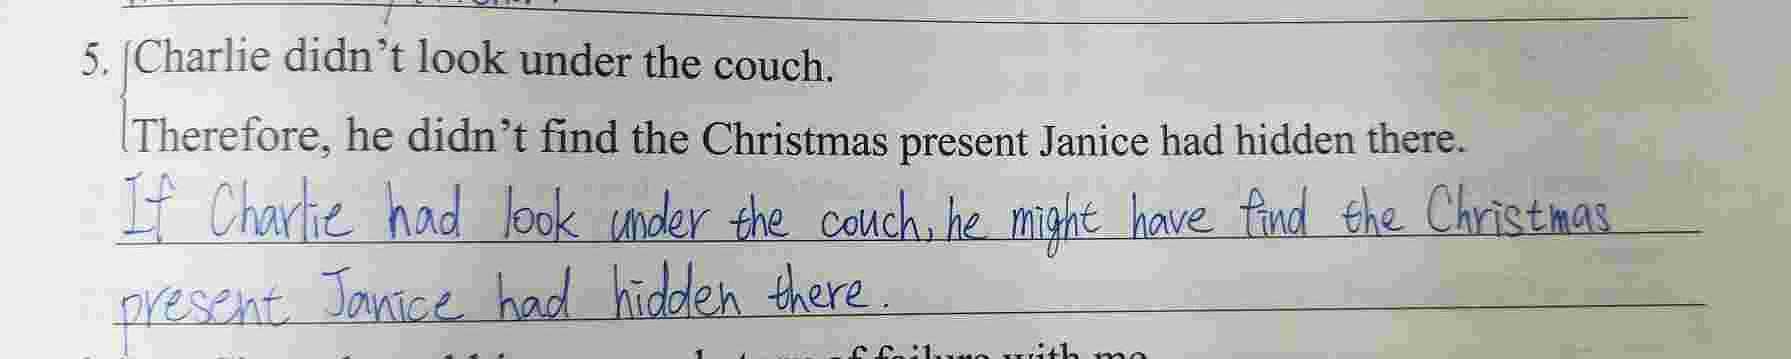 5. Charlie didn't look under the couch.
Therefore, he didn't find the Christmas present Janice had hidden there.
If Charlie had look under the couch, he might have find the Christmas
present Janice had hidden there.
of failure with me